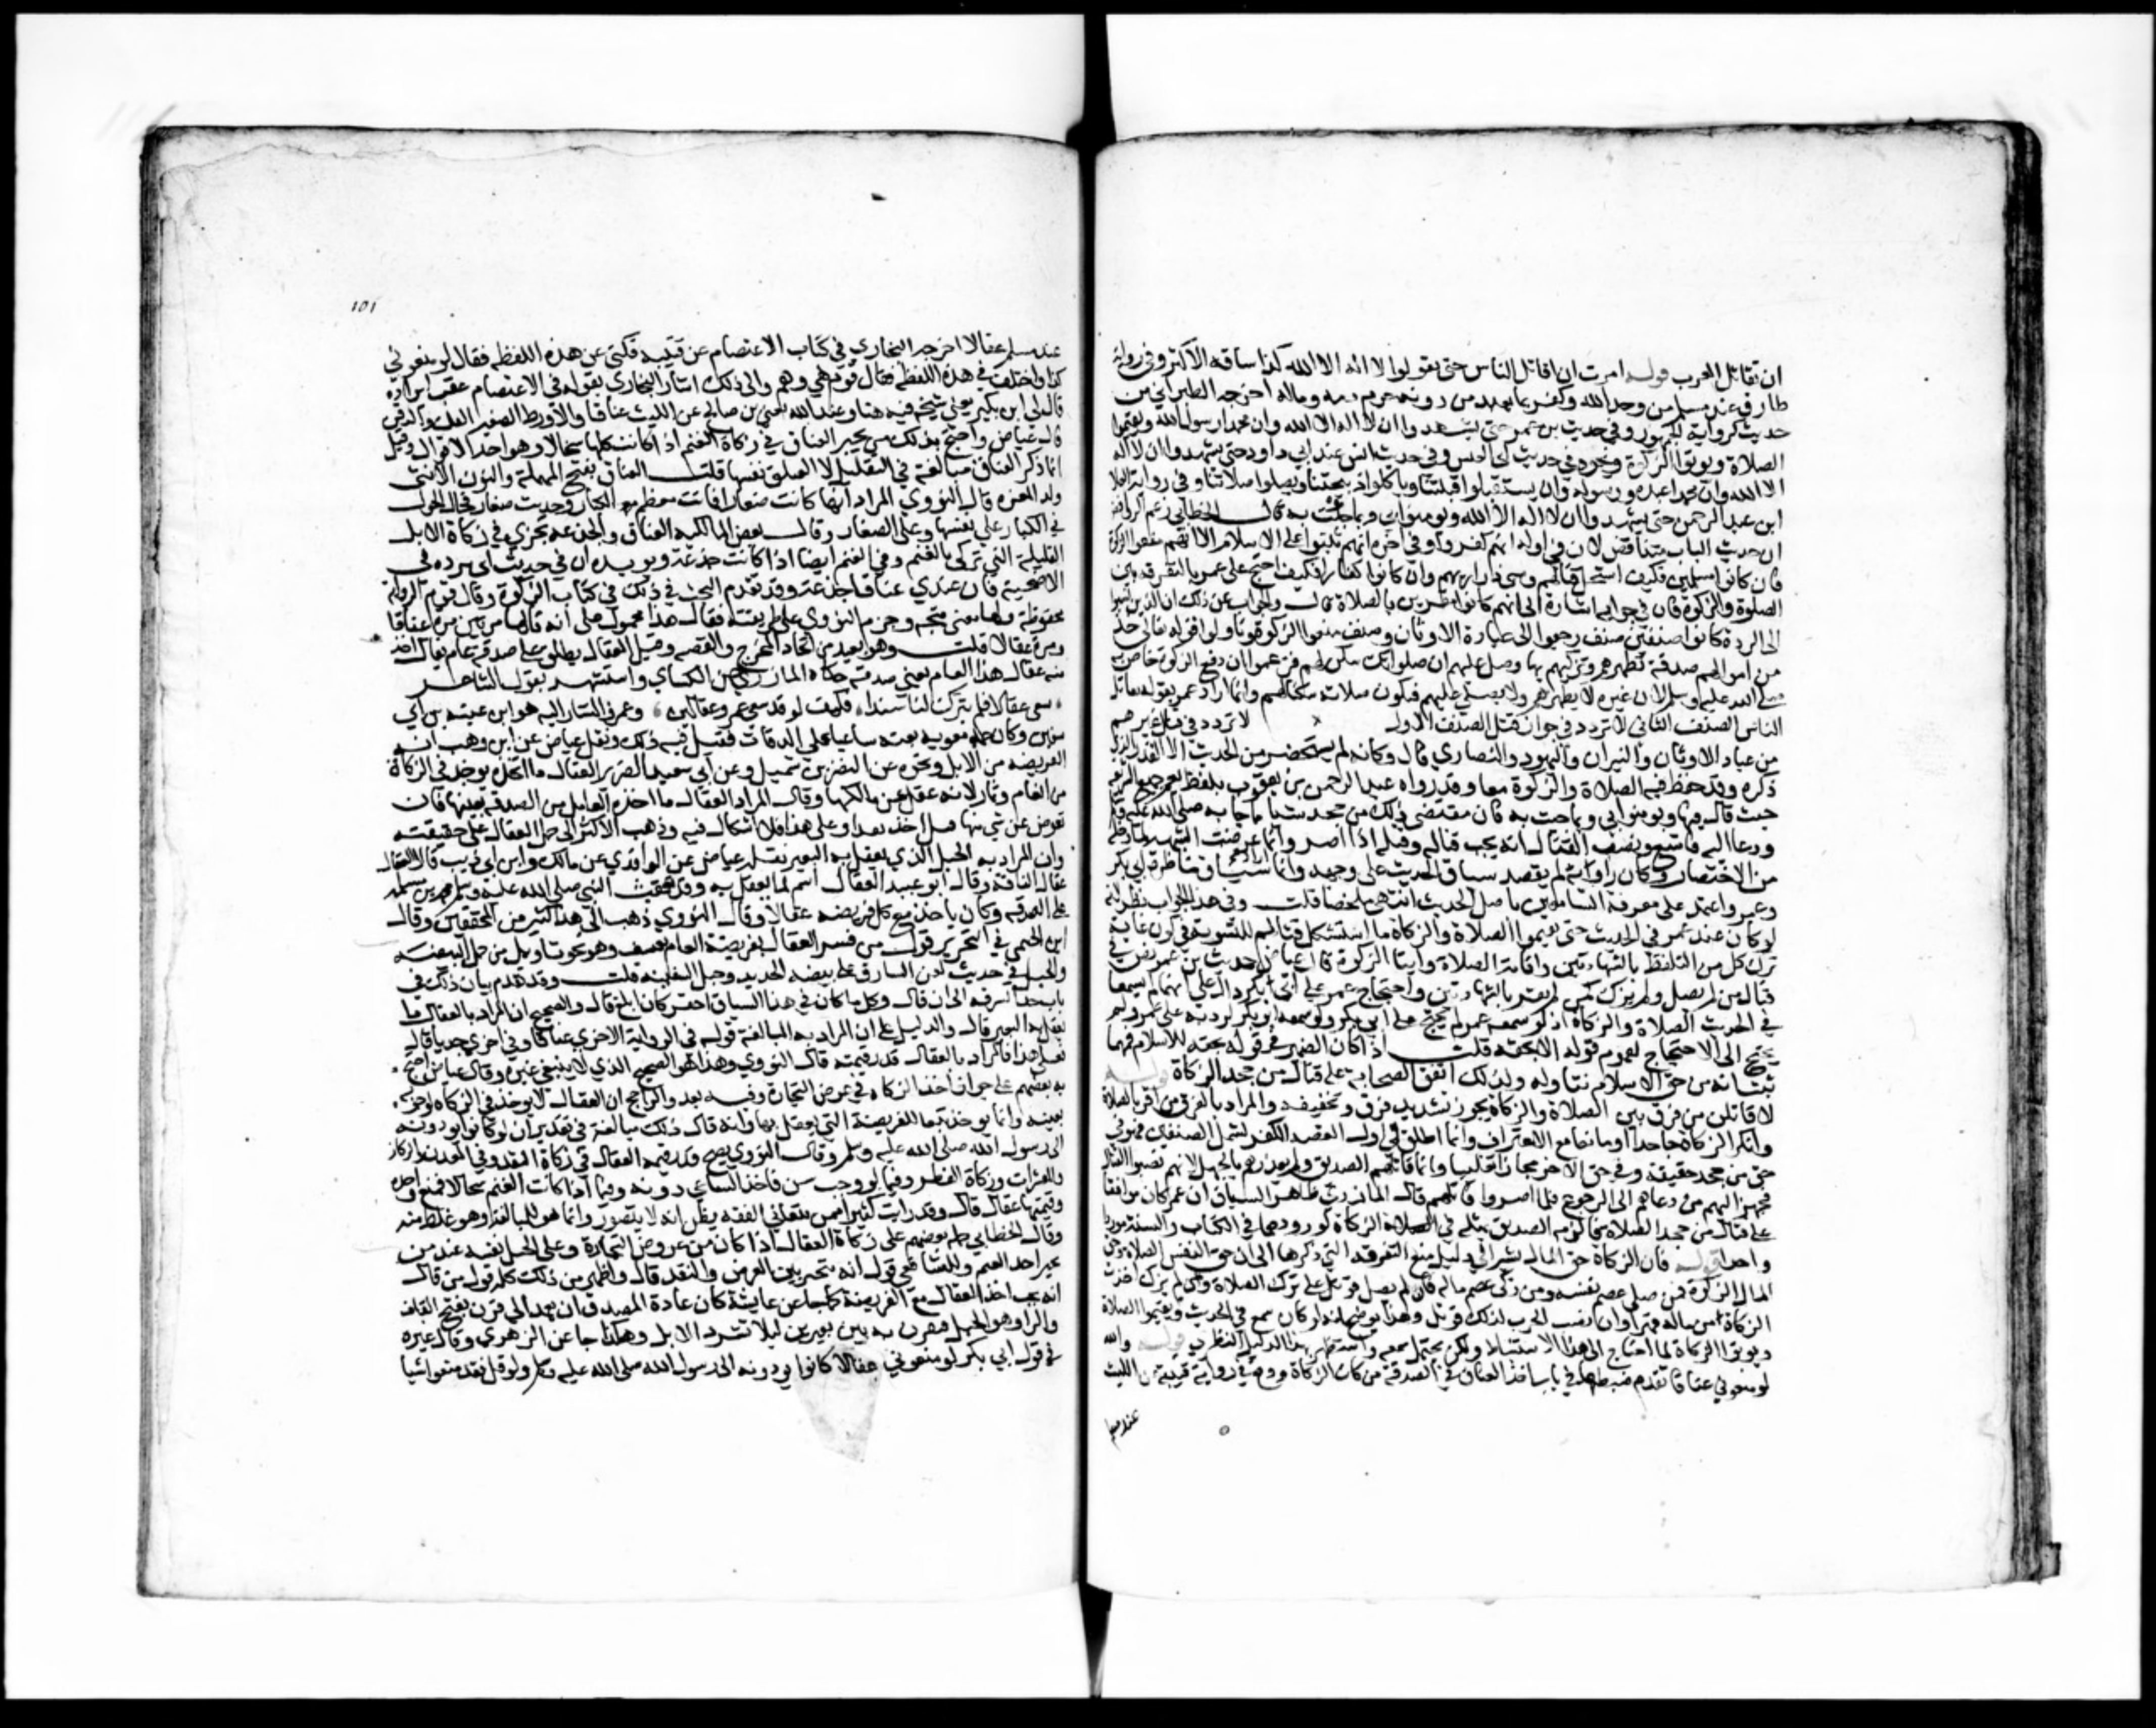 ان تقاتل العرب قوله امرت ان اقاتل الناس حتى يقولوا لا اله الا الله كذا ساقه الاكثر وفي رواية
طارق عند مسلم من وحد الله وكفر بما يعبد من دونه حرم دمه وماله اخرجه الطبراني من
حديثه كرواية الجمهور وفي حديث بن عمر حتى يشهدوا ان لا اله الا الله وان محمدا رسول الله ويقيموا
الصلاة ويوتوا الزكاة ونحوه في حديث ابي العنبس وفي حديث انس عند ابي داود حتى يشهدوا ان لا اله
الا الله وان محمدا عبده ورسوله وان يستقبلوا قبلتنا وياكلوا ذبيحتنا ويصلوا صلاتنا وفي رواية العلا
ابن عبد الرحمن حتى يشهدوا ان لا اله الا الله ويومنوا بي وبما جئت به قال الخطابي زعم الروافض
ان حديث الباب متناقض لان في اوله انهم كفروا وفي اخره انهم ثبتوا على الاسلام الا انهم منعوا الزكاة
فان كانوا مسلمين فكيف استحل قتالهم وسبي ذراريهم وان كانوا كفارا فكيف احتج على عمر بالتفرقة بين
الصلوة والزكوة فان في جوابه اشارة الى انهم كانوا مقرين بالصلاة قال والجواب عن ذلك ان الذين نسبوا
الى الردة كانوا صنفين صنف رجعوا الى عبادة الاوثان وصنف منعوا الزكوة وتاولوا قوله تعالى خذ
من اموالهم صدقة تطهرهم وتزكيهم بها وصل عليهم ان صلواتك سكن لهم فزعموا ان دفع الزكوة خاص به
صلى الله عليه وسلم لان غيره لا يطهرهم ولا يصلي عليهم فكيف تكون صلاته سكنا لهم وانما اراد عمر بقوله تقاتل
الناس الصنف الثاني لانه لا يتردد في جواز قتل الصنف الاول لا تردد في قتال غيرهم
من عباد الاوثان والنيران واليهود والنصارى قال وكانه لم يستحضر من الحديث الا القدر الذي
ذكره وقد حفظ فيه الصلاة والزكوة معا وقد رواه عبد الرحمن بن يعقوب بلفظ يعم جميع الشريعة
حيث قال فيها ويومنوا بي وبما جئت به فان مقتضى ذلك من جحد شيئا مما جا به صلى الله عليه وسلم
ودعا اليه فامتنع ونصب القتال انه يجب قتاله وقتله اذا اصر وانما عرضت الشبهة لما دخله
من الاختصار وكان راويه لم يقصد سياق الحديث على وجهه وانما اراد سياق مناظرة ابي بكر
وعمر واعتمد على معرفة السامعين باصل الحديث انتهى ملخصا قلت وفي هذا الجواب نظر لانه
لو كان عند عمر في الحديث حتى يقيموا الصلاة والزكاة ما استشكل قتالهم للتسوية في كون غاية
ترك كل من التلفظ بالشهادتين واقامة الصلاة وايتا الزكوة قال عياض حديث بن عمر نص في
قتال من لم يصل ولم يزك كمن لم يقر بالشهادتين واحتجاج عمر على ابي بكر دال على انهما لم يسمعا
في الحديث الصلاة والزكاة اذ لو سمعه عمر لم يحتج على ابي بكر ولو سمعه ابو بكر لرد به على عمر ولم
يحتج الى الاحتجاج لعموم قوله الا بحقه قلت اذا كان الضمير في قوله بحقه للاسلام فمهما
ثبت انه من حق الاسلام تناوله ولذلك اتفق الصحابة على قتال من جحد الزكاة قوله
لاقاتلن من فرق بين الصلاة والزكاة يجوز تشديد فرق وتخفيفه والمراد بالفرق من اقر بالصلاة
وانكر الزكاة جاحدا او مانعا مع الاعتراف وانما اطلق في اول القصة الكفر ليشمل الصنفين فهو في
حق من جحد حقيقة وفي حق الاخر مجاز تغليبا وانما قاتلهم الصديق ولم يعذرهم بالجهل لانهم نصبوا القتال
فجهز اليهم من دعاهم الى الرجوع فلما اصروا قاتلهم قال المازري ظاهر السياق ان عمر كان موافقا
على قتال من جحد الصلاة فالزمه الصديق بمثله في الزكاة لورودهما في الكتاب والسنة موردا
واحدا قوله فان الزكاة حق المال يشير الى دليل منع التفرقة التي ذكرها الى ان حق النفس الصلاة وحق
المال الزكوة فمن صلى عصم نفسه ومن زكى عصم ماله فان لم يصل قوتل على ترك الصلاة ومن لم يزك اخذت
الزكاة من ماله قهرا وان نصب الحرب لذلك قوتل وهذا يوضح انه لو كان سمع في الحديث ويقيموا الصلاة
ويوتوا الزكاة لما احتاج الى هذا الاستنباط ولكن يحتمل سمعه واستظهر بهذا الدليل النظري قوله والله
لو منعوني عناقا تقدم ضبطها في باب اخذ العناق في الصدقة من كتاب الزكاة ووقع في رواية قتيبة عن الليث
عند مسلم
١٥١
عند مسلم عقالا اخرجه البخاري في كتاب الاعتصام عن قتيبة فكنى عن هذه اللفظة فقال لو منعوني
كذا واختلف في هذه اللفظة فقال قوم هي وهم والى ذلك اشار البخاري بقوله في الاعتصام عقب ايراده
قال لي ابن بكير يعني شيخه فيه هنا وعبد الله يعني بن صالح عن الليث عناقا
قال عياض واحتج بذلك من يجيز العناق في زكاة الغنم اذا كانت كلها سخالا وهو احد الاقوال وقيل
انما ذكر العناق مبالغة في التقليل لا العناق نفسها قلت العناق بفتح المهملة والنون الانثى
ولد المعز قال النووي المراد انها كانت صغارا فماتت
في الكبار على بقيتها وعلى الصغار وقال بعض المالكية العناق والجذعة تجزي في زكاة الابل
القليلة التي تزكى بالغنم وفي الغنم ايضا اذا كانت جذعة ويويده ان في حديث ابي بردة في
الاضحية فان عندي عناقا جذعة وقد تقدم البحث في ذلك في كتاب الزكوة وقال قوم الرواية
محفوظة ولها معنى متجه وجزم النووي على طريقته فقال هذا محمول على انه قالها مرتين مرة عناقا
ومرة عقالا قلت وهو بعيد من اتحاد المخرج والقصة وقيل العقال يطلق على صدقة عام يقال اخذ
منه عقال هذا العام يعني صدقته حكاه المازري عن الكسائي واستشهد بقول الشاعر
سعى عقالا فلم يترك لنا سبدا فكيف لو قد سعى عمرو عقالين وعمرو المشار اليه هو ابن عتبة بن ابي
سفين وكان عمه معوية بعثه ساعيا على الصدقات فقيل فيه ذلك ونقل عياض عن ابن وهب انه
الفريضة من الابل ونحوه عن النضر بن شميل وعن ابي سعيد الضرير العقال ما يوخذ في الزكاة
من انعام وثمار لانه عقل عن مالكها وقال المراد العقال ما اخذه العامل من الصدقة بعينها فان
تعوض عن شي منها قيل اخذ نقدا وعلى هذا فلا اشكال فيه وذهب الاكثر الى حمل العقال على حقيقته
وان المراد به الحبل الذي يعقل به البعير نقله عياض عن الواقدي عن مالك وابن ابي ذيب قالا العقال
عقال الناقة وقال ابو عبيد العقال اسم لما يعقل به وقد بعث النبي صلى الله عليه وسلم محمد بن مسلمة
على الصدقة وكان ياخذ مع كل فريضة عقالا وقال النووي ذهب الى هذا كثير من المحققين وقال
ابن التيمي في التحرير قول من فسر العقال بفريضة العام تعسف وهو نحو تاويل من حمل البيضة
والحبل في حديث لعن السارق على بيضة الحديد وحبل السفينة قلت وقد تقدم بيان ذلك في
باب حد السرقة الى ان قال وكل ما كان في هذا السياق احقر كان ابلغ قال والصحيح ان المراد بالعقال ما
يعقل به البعير قال والدليل على ان المراد به المبالغة قوله في الرواية الاخرى عناقا وفي اخرى جديا قال
فعلى هذا فالمراد بالعقال قدر قيمته قال النووي وهذا هو الصحيح الذي لا ينبغي غيره وقال عياض احتج
به بعضهم على جواز اخذ الزكاة في عروض التجارة وفيه بعد والراجح ان العقال لا يوخذ في الزكاة لوجوبه
بعينه وانما يوخذ تبعا للفريضة التي يعقل بها وانه قال ذلك مبالغة في تقدير ان لو كانوا يودونه
الى رسول الله صلى الله عليه وسلم وقال النووي يصح قدر قيمة العقال في زكاة النقد وفي المعدن والركاز
والمعشرات وزكاة الفطر وفيما لو وجبت سن فاخذ الساعي دونه وفيما اذا كانت الغنم سخالا فمنع واحدة
وقيمتها عقال قال وقد رايت كثيرا ممن يتعاني الفقه يظن انه لا يتصور وانما هو للمبالغة وهو غلط منه
وقال الخطابي حمله بعضهم على زكاة العقال اذا كان من عروض التجارة وعلى الحبل نفسه عند من
يجيز اخذ القيم وللشافعي قول انه يتخير بين العرض والنقد قال واظهر من ذلك كله قول من قال
انه يجب اخذ العقال مع الفريضة كما جا عن عايشة كان عادة المصدق ان يعمد الى قرن بفتح القاف
والرا وهو الحبل فيقرن به بين بعيرين ليلا تشرد الابل وهكذا جا عن الزهري وقال غيره
في قول ابي بكر لو منعوني عقالا كانوا يودونه الى رسول الله صلى الله عليه وسلم